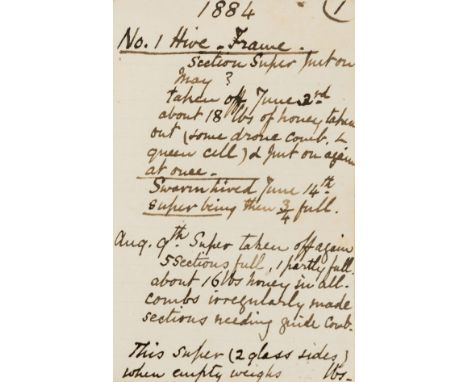 1884 1
No. 1 Hive - Frame.
Section Super put on
May ?
taken off June 2rd
about 18 lbs of honey taken
out (some drone comb, &
queen cell) & put on again
at once. -
Swarm hived June 14th
super being then 3/4 full.
Aug. 9th Super taken off again
5 sections full, 1 partly full.
about 16 lbs honey in all -
combs irregularly made
sections needing guide comb.
This super (2 glass sides)
when empty weighs lbs -